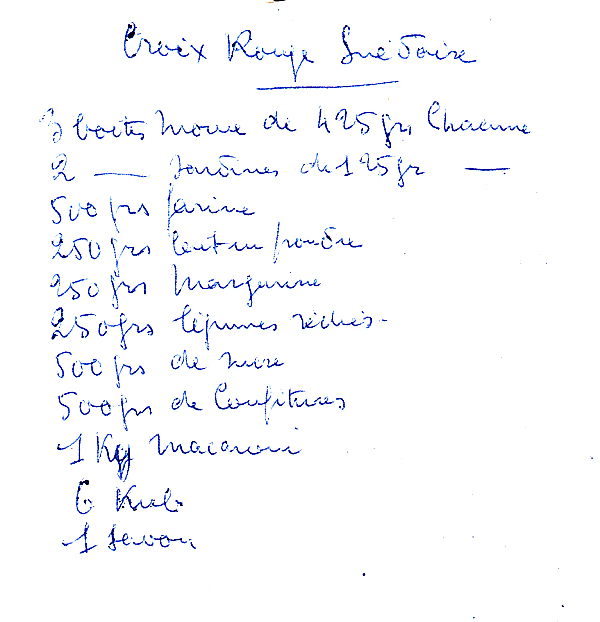 Croix Rouge Suédoise
3 boites Morue de 425grs Chacune
2 — Sardines de 125gr —
500grs farine
250grs lait en poudre
250grs Margarine
250grs légumes séchés -
500grs de sucre
500grs de Confitures
1 Kg Macaroni
6 Kub
1 savon